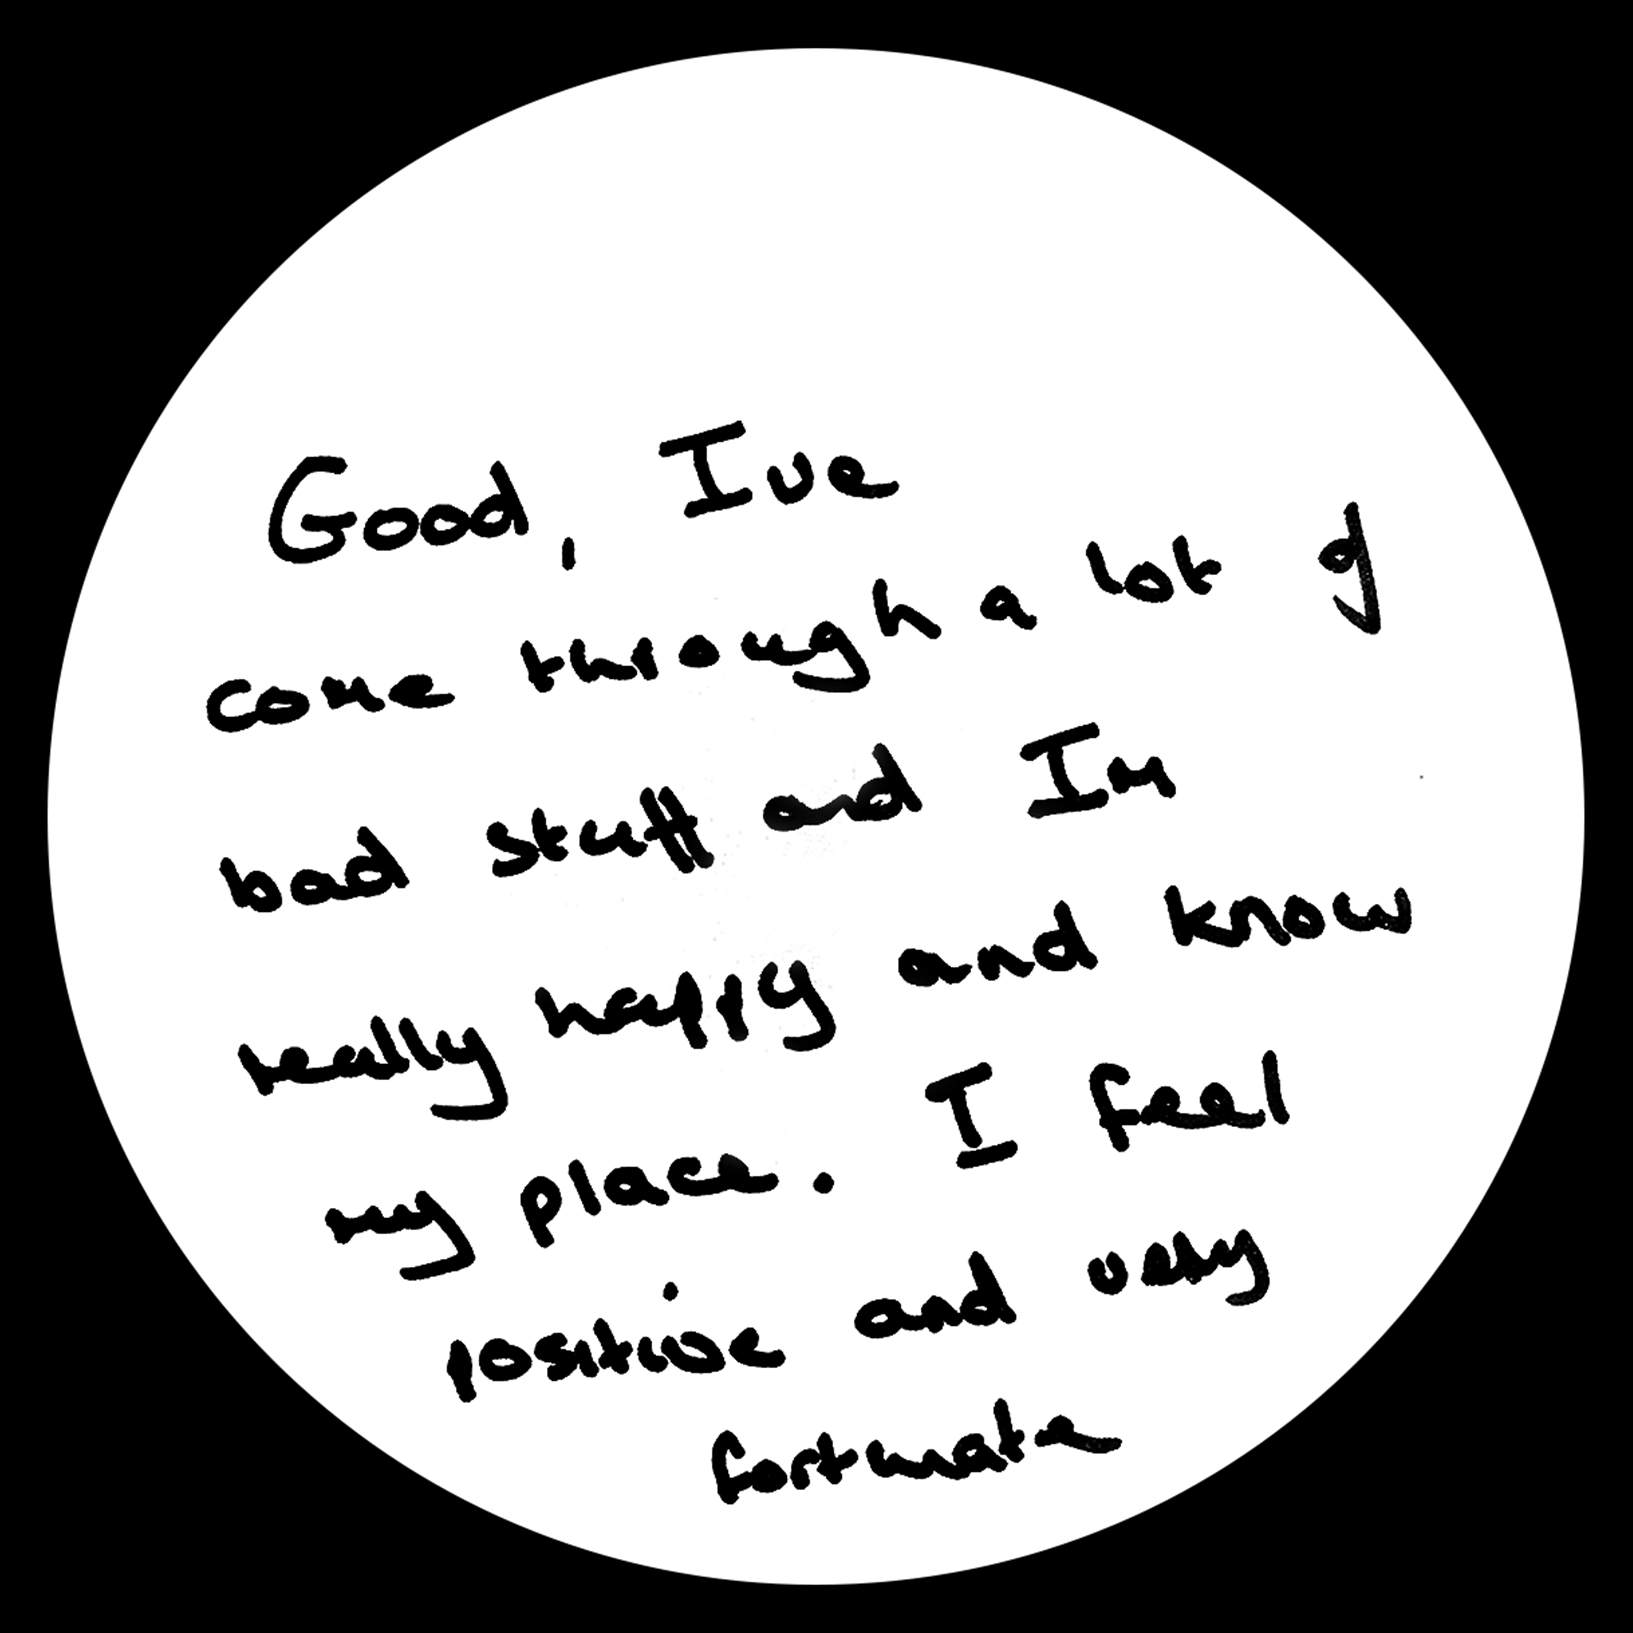 Good, Ive
come through a lot of
bad stuff and Im
really happy and know
my place. I feel
positive and very
fortunate